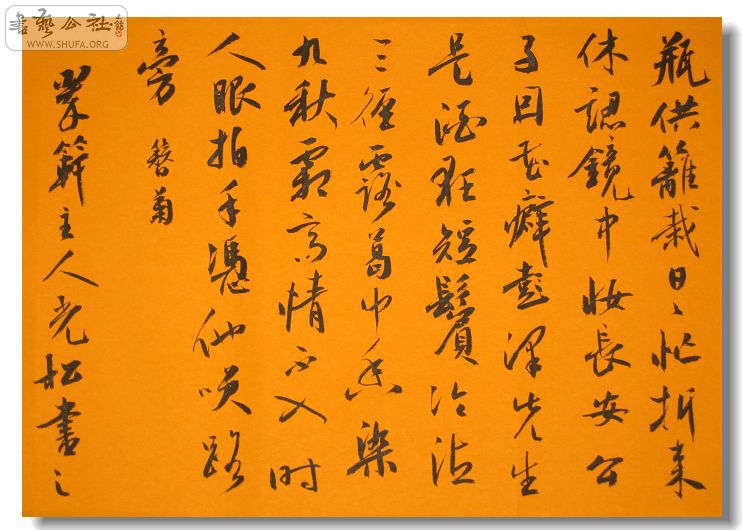 書藝公社
WWW.SHUFA.ORG
瓶供籬栽日〻忙折来
休認鏡中妝長安公
子因花癖彭澤先生
是酒狂短鬢冷沾
三徑露葛巾香染
九秋霜高情不入时
人眼拍手憑他笑路
旁 簪菊
主人光松書之